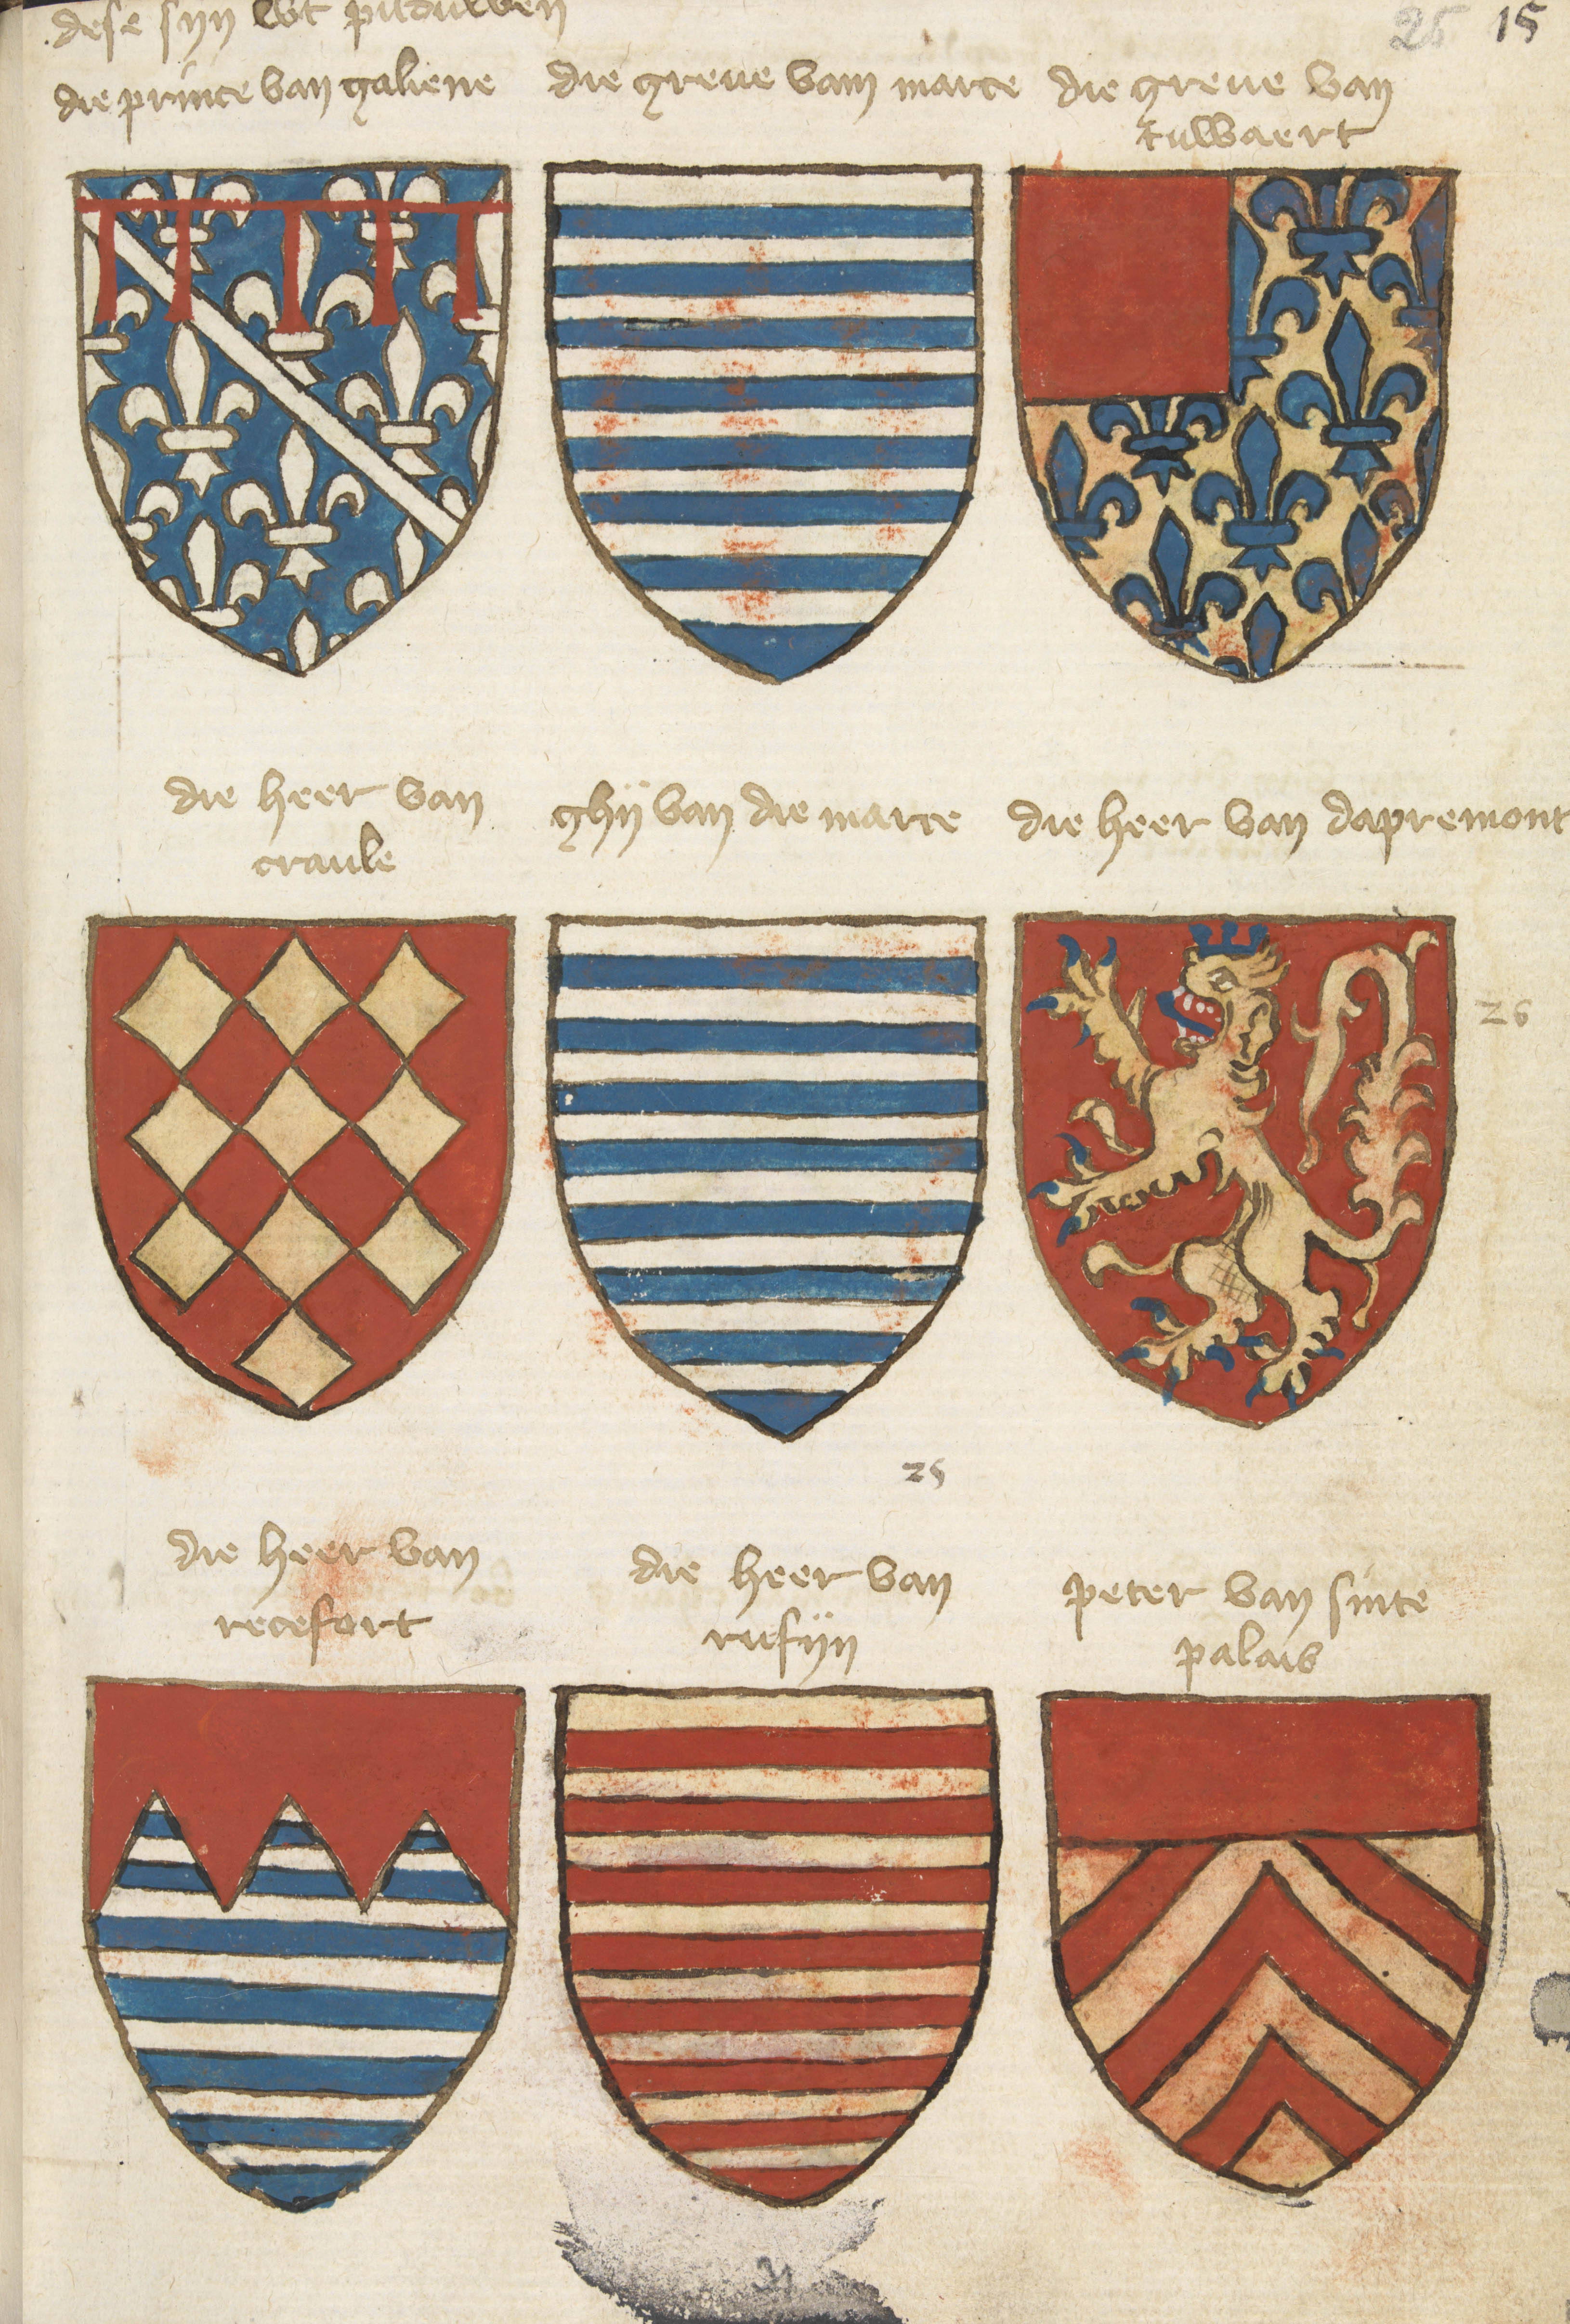 dese syn wt pitduwen
25 15
die prince van galiene
die greue vam marce
die greue van
tuwaert
die heer van
craule
ghÿ van die marce
die heer van dapremont
26
25
die heer van
recefort
die heer van
rufÿn
peter van sinte
palais